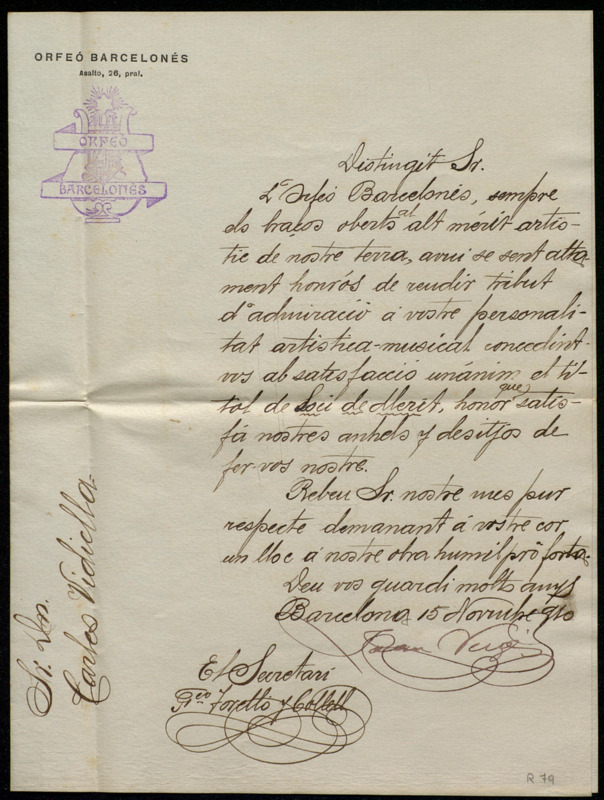 ORFEÓ BARCELONÉS
Asalto, 26, pral.
ORFEÓ
BARCELONÉS
Distingit Sr.
L'Orfeó Barcelonés, sempre
ab braços oberts al alt mérit artis-
tic de nostre terra, avui se sent alta-
ment honrós de rendir tribut
d'admiració á vostre personali-
tat artistica-musical concedint-
vos ab satisfacció unánim el tí-
tol de Soci de Mérit, honor que satis-
fá nostres anhels y desitjos de
fer-vos nostre.
Rebeu Sr. nostre mes pur
respecte demanant á vostre cor
un lloc a nostre obra humil pró forta.
Deu vos guardi molts anys
Barcelona 15 Novembre 910
El Secretari
y Collell
Sr. Dn.
Carles Vidiella
R 79